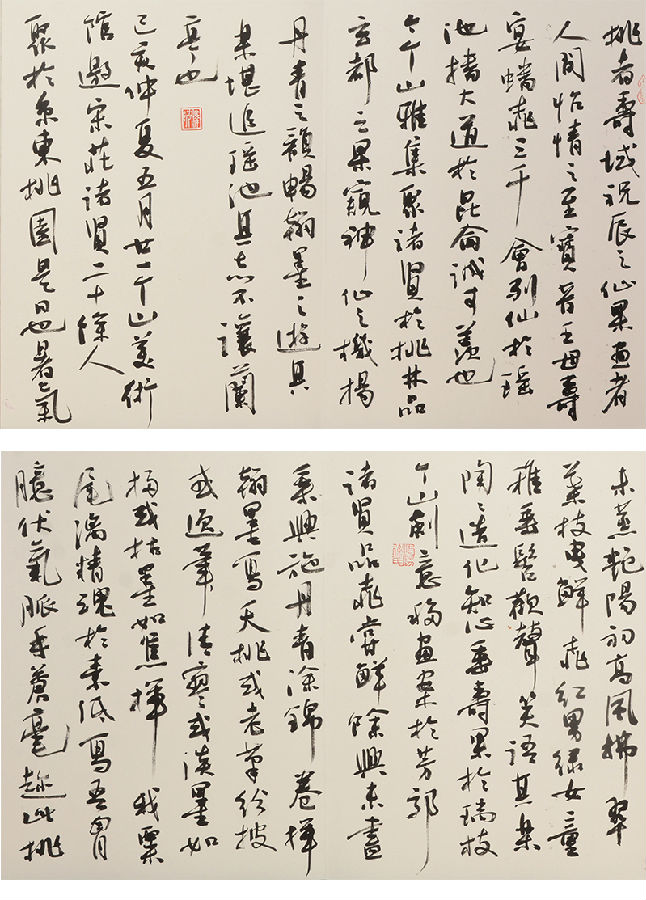 桃者壽域祝辰之仙果畫者
人間怡情之至寶昔王母壽
宴蟠桃三千會列仙於瑶
池播大道於昆侖誠可羨也
今个山雅集聚諸賢於桃林品
玄都之果窺神仙之機揚
丹青之韻暢翰墨之遊其
樂堪追瑶池其志不讓蘭
亭也
己亥仲夏五月廿一个山美術
館邀宋莊諸賢二十餘人
聚於京東桃園是日也暑氣
未蒸艳陽初高風拂翠
葉枝曳鮮桃紅男绿女童
稚垂髫歡聲笑語其樂
陶陶造化知心垂壽果於瑞枝
个山刻意移畫案於芳郊
諸賢品桃嘗鮮餘興未盡
乘興施丹青塗錦卷揮
翰墨寫夭桃或老筆纷披
或逸筆清寥或淡墨如
或枯墨如焦揮
尾漓精魂於素纸寫吾胷
臆伏氣脈乎蒼毫趁此桃